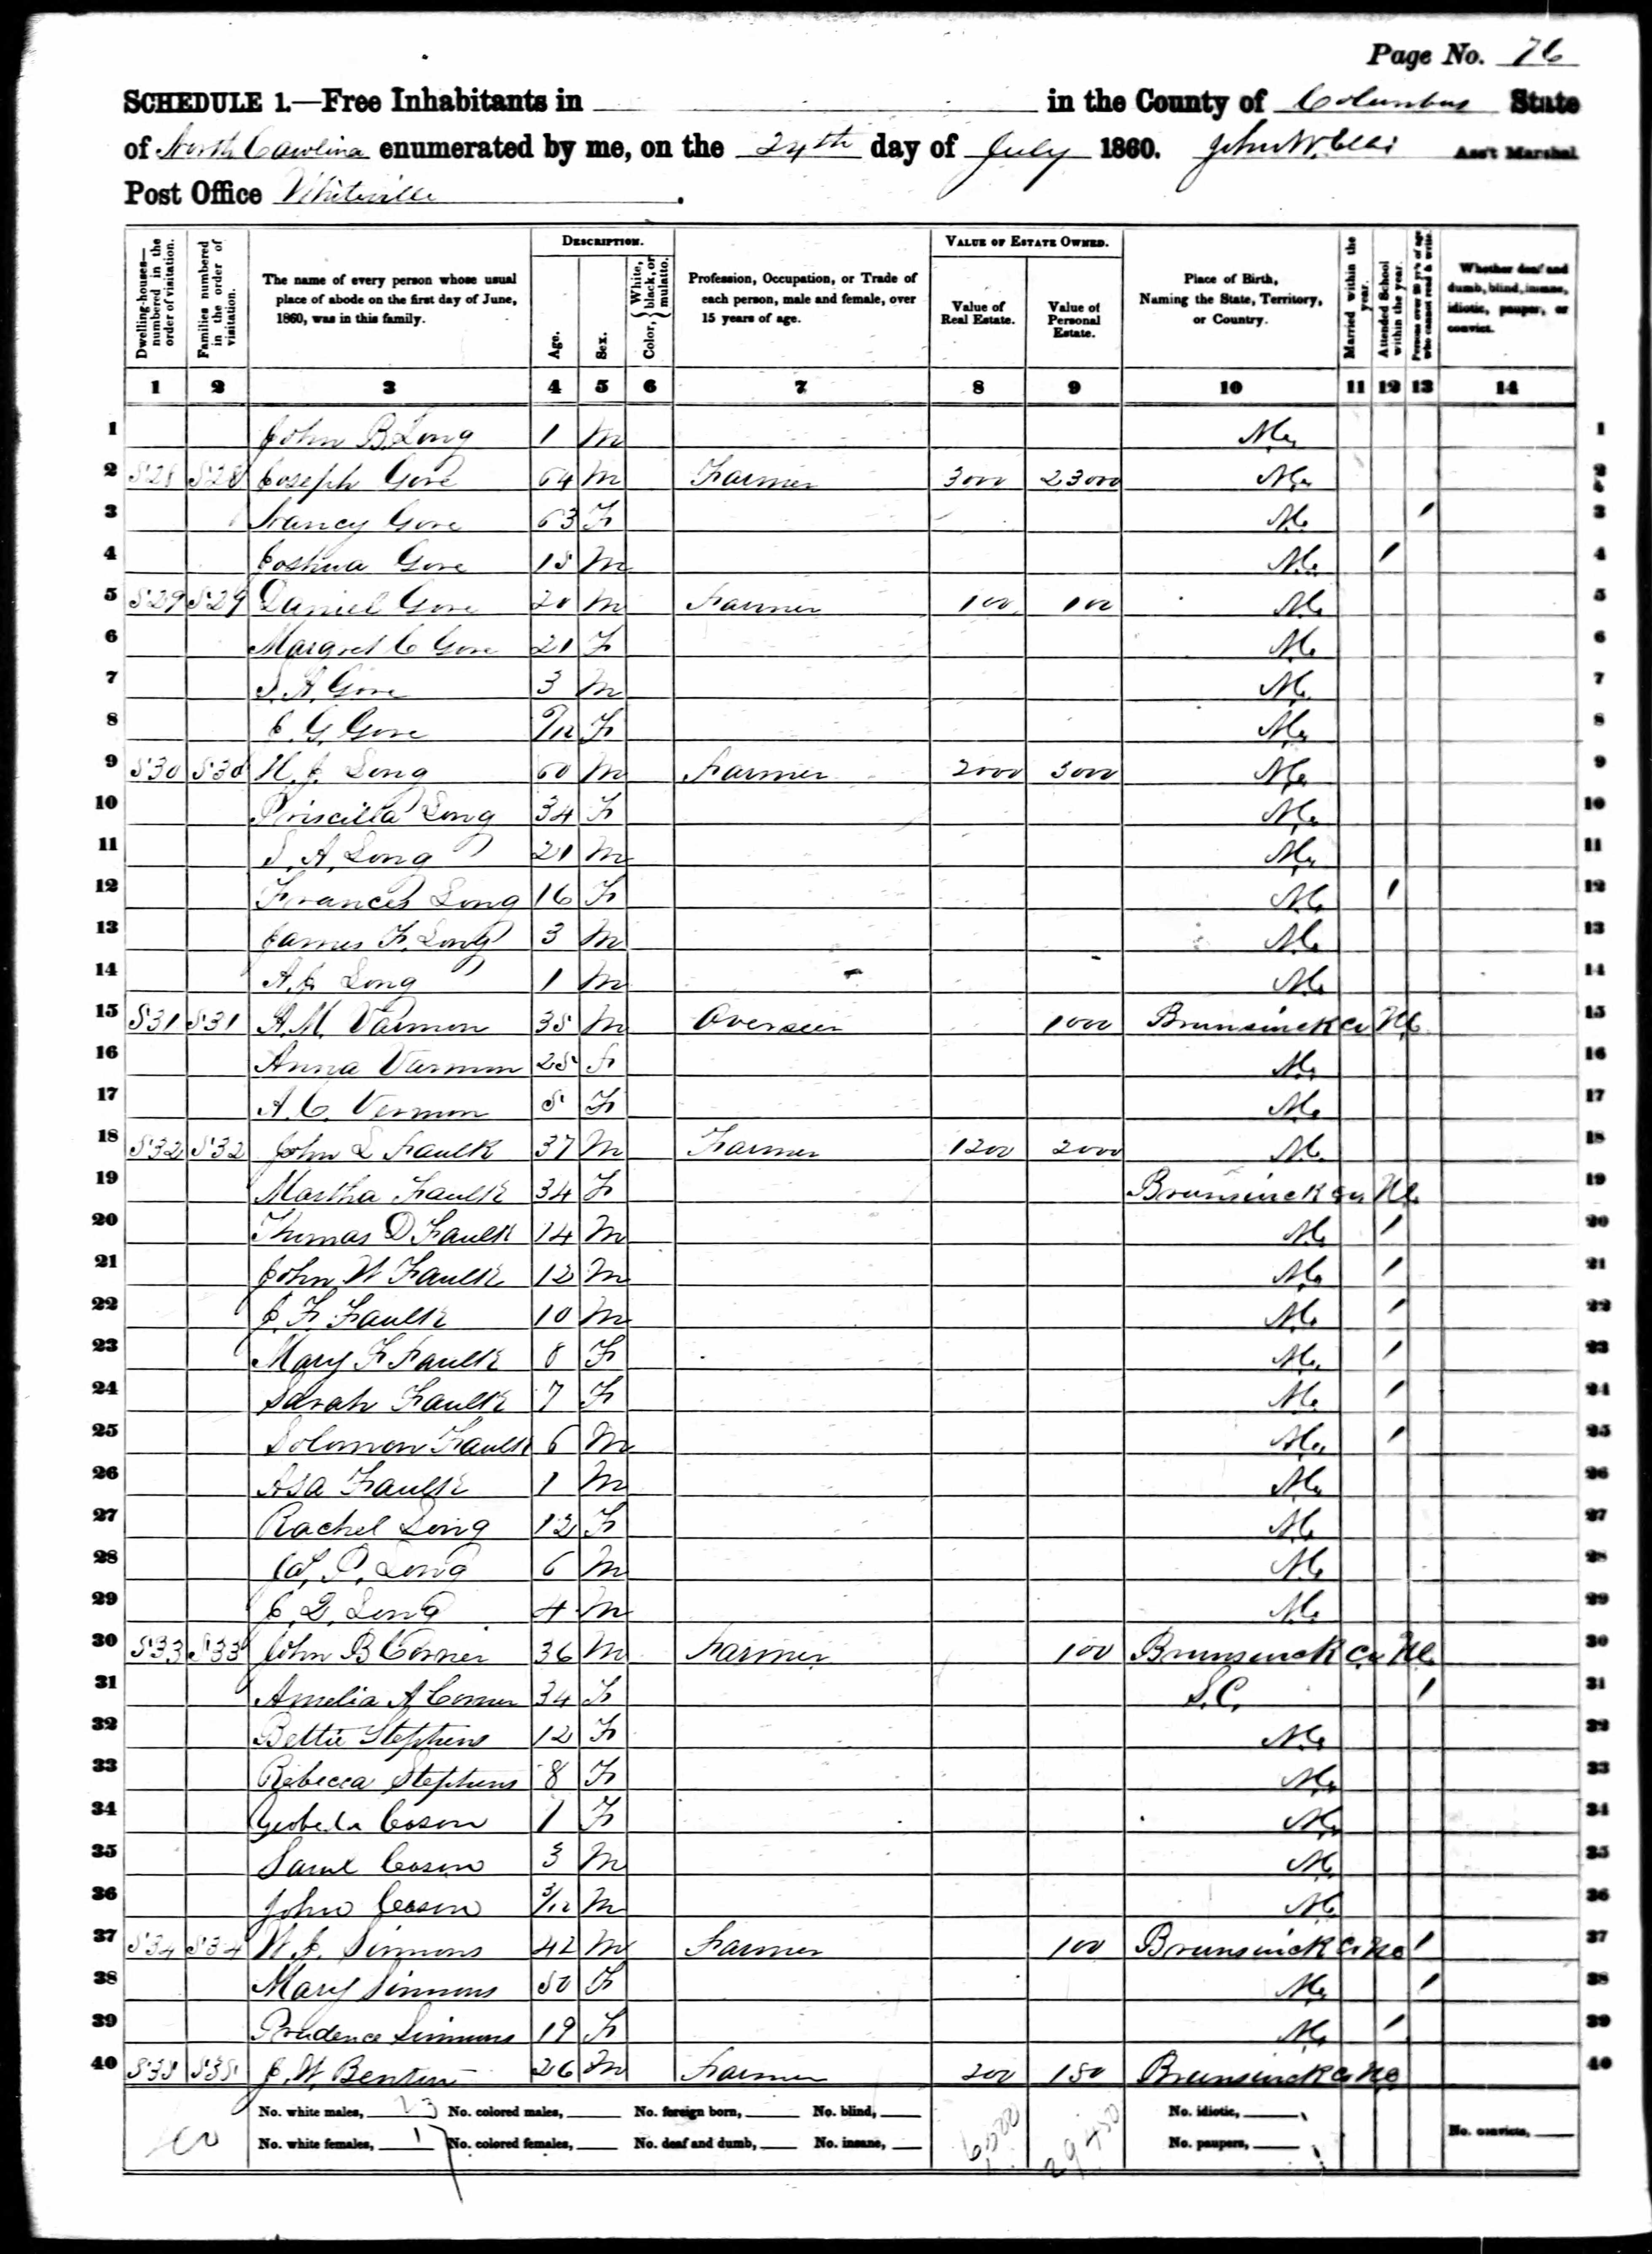 Page No. 76
SCHEDULE 1.—Free Inhabitants in in the County of Columbus State
of North Carolina enumerated by me, on the 24th day of July 1860. John W. Ellis Ass't Marshal
Post Office Whiteville.
Dwelling-houses—numbered in the order of visitation. Families numbered in the order of visitation. The name of every person whose usual place of abode on the first day of June, 1860, was in this family. DESCRIPTION. Age. Sex. Color, {White, black, or mulatto. Profession, Occupation, or Trade of each person, male and female, over 15 years of age. VALUE OF ESTATE OWNED. Value of Real Estate. Value of Personal Estate. Place of Birth, Naming the State, Territory, or Country. Married within the year. Attended School within the year. Persons over 20 y'rs of age who cannot read & write. Whether deaf and dumb, blind, insane, idiotic, pauper, or convict.
1 2 3 4 5 6 7 8 9 10 11 12 13 14
1 John B. Long 1 M Nc 1
2 528 528 Joseph Gore 64 M Farmer 3000 23000 Nc 2
3 Nancy Gore 63 F Nc / 3
4 Joshua Gore 15 M Nc / 4
5 529 529 Daniel Gore 20 M Farmer 100 100 Nc 5
6 Margret C Gore 21 F Nc 6
7 S. A. Gore 3 M Nc 7
8 G. Gore 9/12 F Nc 8
9 530 530 Long 60 M Farmer 2000 3000 Nc 9
10 Priscilla Long 34 F Nc 10
11 S. A. Long 21 M Nc 11
12 Frances Long 16 F Nc / 12
13 James F. Long 3 M Nc 13
14 A. J. Long 1 M Nc 14
15 531 531 A. M. Varmon 35 M Overseer 1000 Brunswick Co Nc 15
16 Anna Varmon 25 F Nc 16
17 A. C. Vermon 5 F Nc 17
18 532 532 John L Faulk 37 M Farmer 1200 2000 Nc 18
19 Martha Faulk 34 F Brunswick Co Nc 19
20 Thomas D Faulk 14 M Nc / 20
21 John W Faulk 12 M Nc / 21
22 J. F. Faulk 10 M Nc / 22
23 Mary F Faulk 8 F Nc / 23
24 Sarah Faulk 7 F Nc / 24
25 Solomon Faulk 6 M Nc / 25
26 Asa Faulk 1 M Nc 26
27 Rachel Long 12 F Nc 27
28 P. Long 6 M Nc 28
29 Long 4 M Nc 29
30 533 533 John B Corner 36 M Farmer 100 Brunswick Co Nc 30
31 Amelia A Corner 34 F S.C. / 31
32 Bettie Stephens 12 F Nc 32
33 Rebecca Stephens 8 F Nc 33
34 Coson 1 F Nc 34
35 Saml Coson 3 M Nc 35
36 John Coson 3/12 M Nc 36
37 534 534 W. J. Simmons 42 M Farmer 100 Brunswick Co Nc / 37
38 Mary Simmons 50 F Nc / 38
39 Prudence Simmons 19 F Nc / 39
40 535 535 J. W. Benton 26 M Farmer 200 150 Brunswick Co Nc 40
No. white males, 23 No. colored males, No. foreign born, No. blind, 6500 29450 No. idiotic,
No. white females, 17 No. colored females, No. deaf and dumb, No. insane, No. paupers, No. convicts,